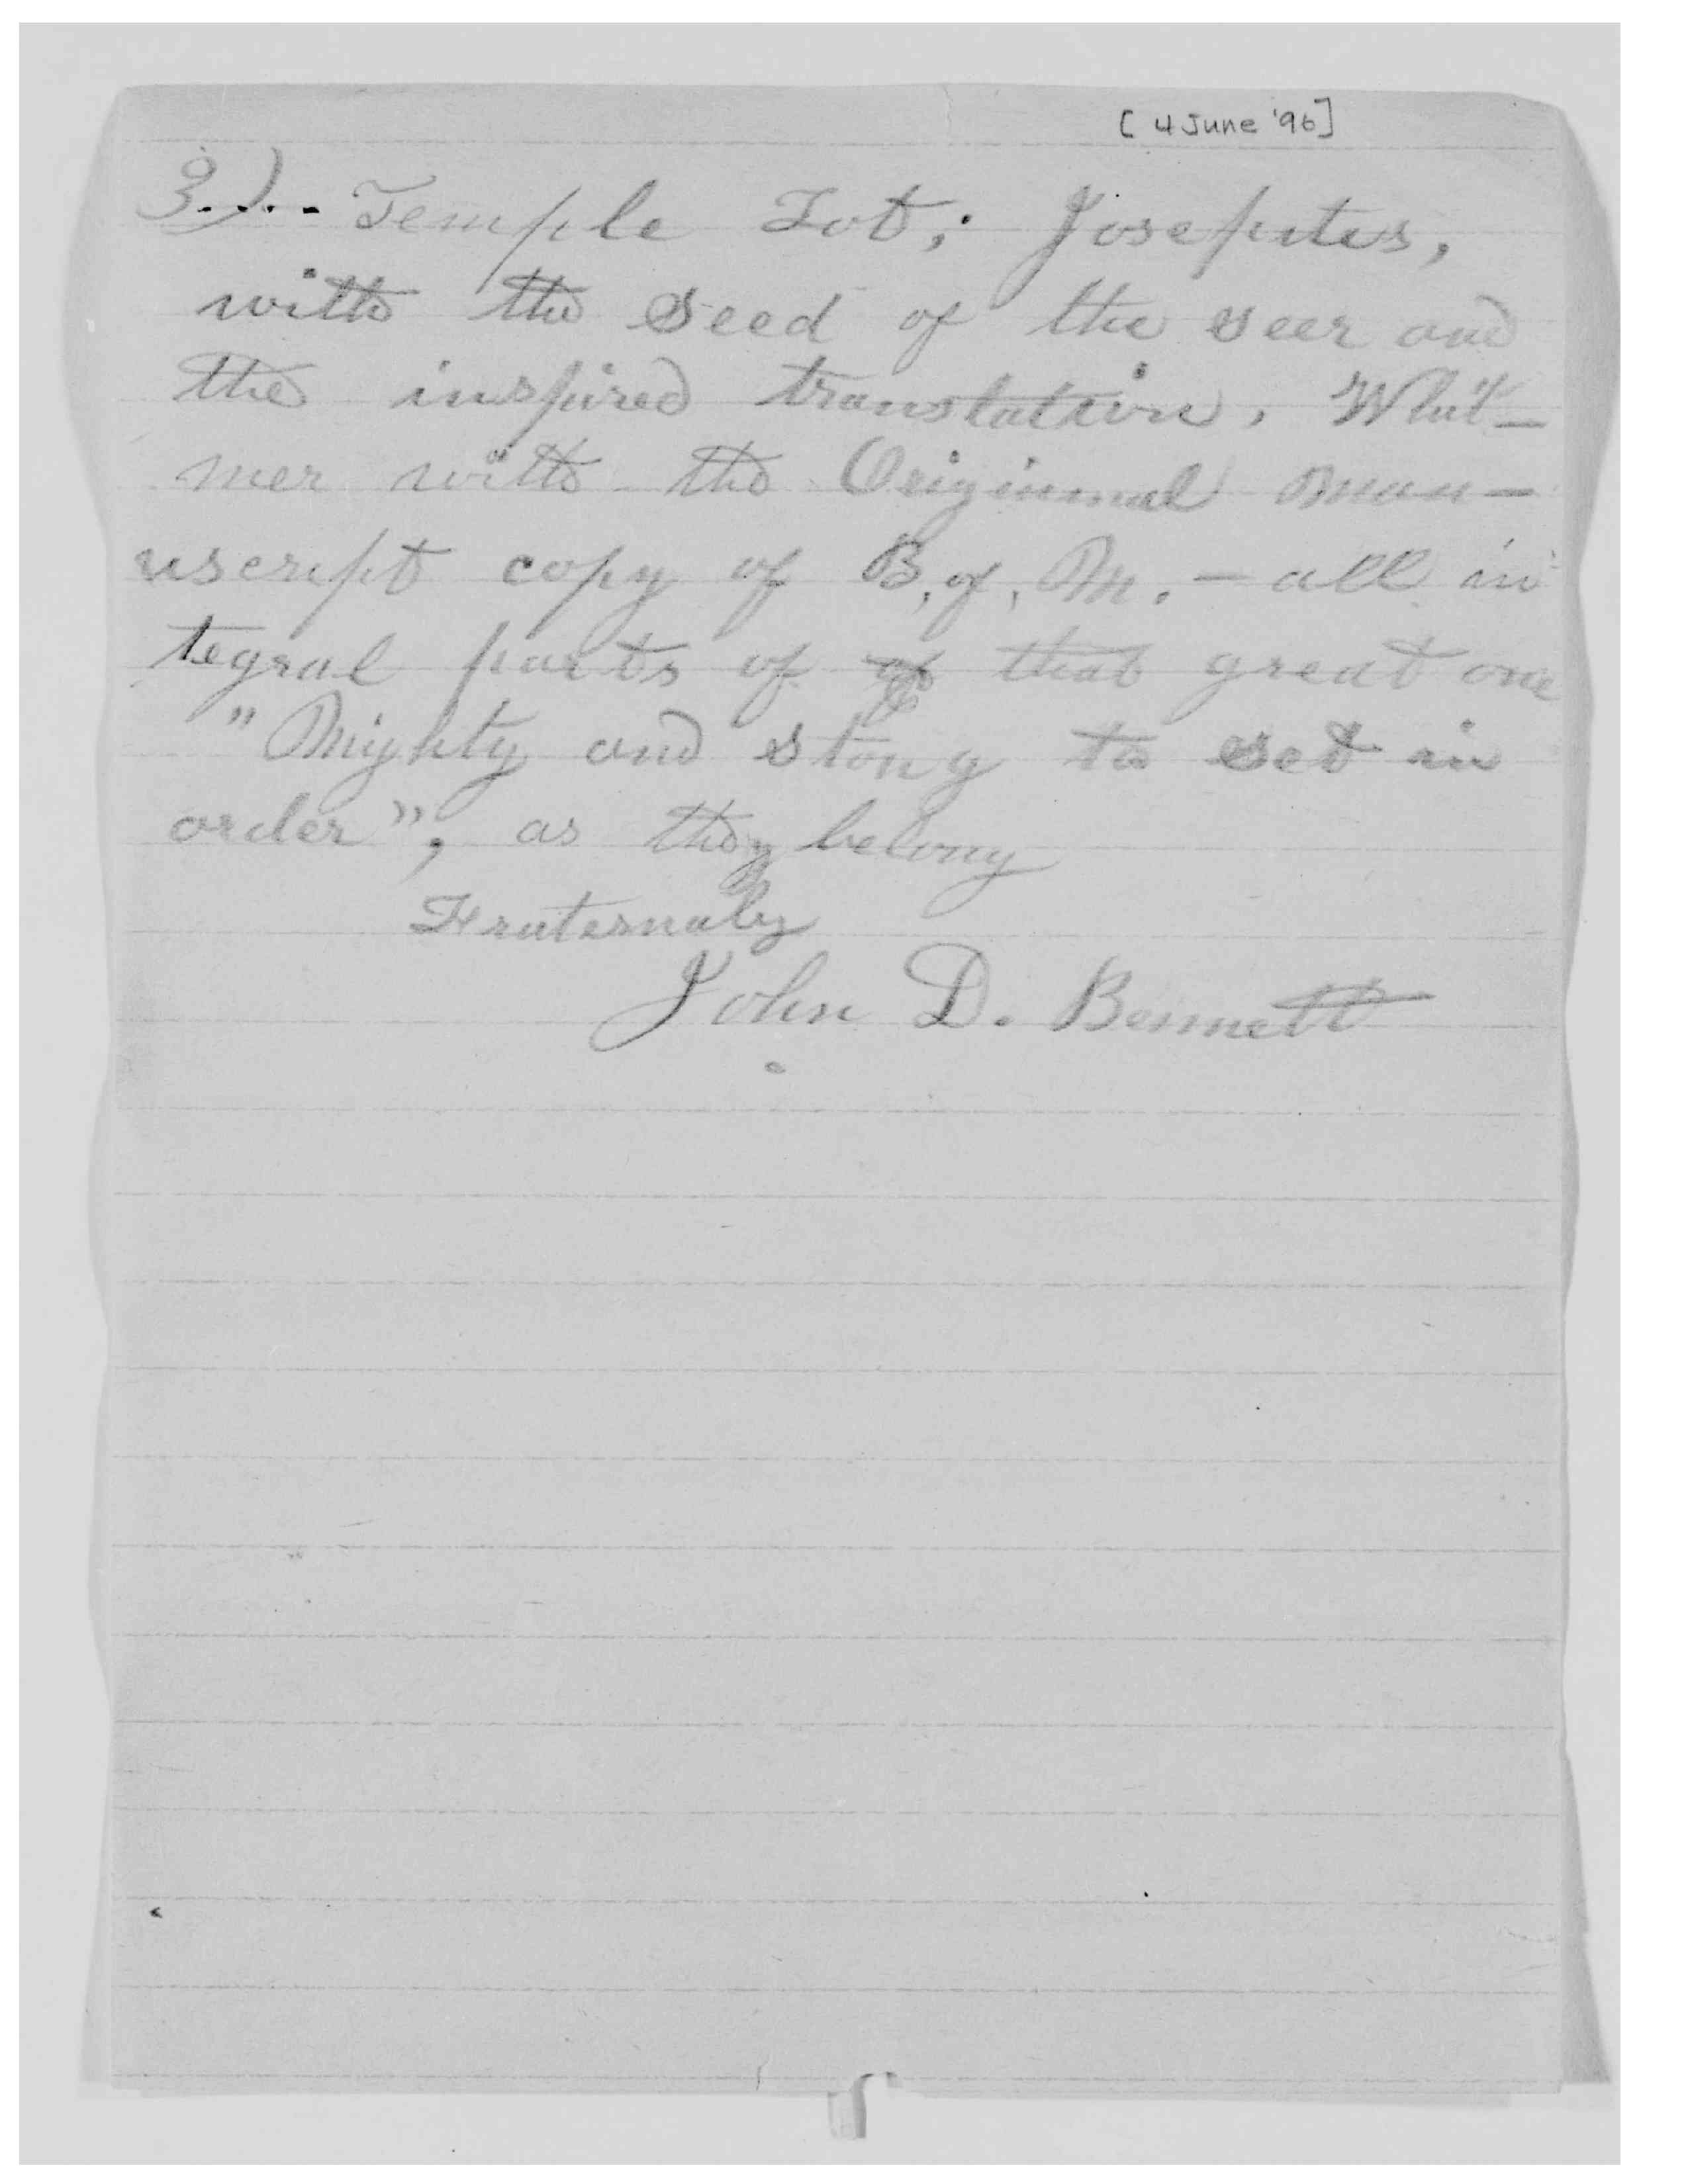 [ 4 June '96]
3.).- Temple Lot; Josephites,
with the seed of the seer and
the inspired translation, Whit-
mer with the Originnal man-
uscript copy of B. of, M. - all in
tegral parts of of that great one
"Mighty and stong to set in
order", as they belong
Fraternaly
John D. Bennett